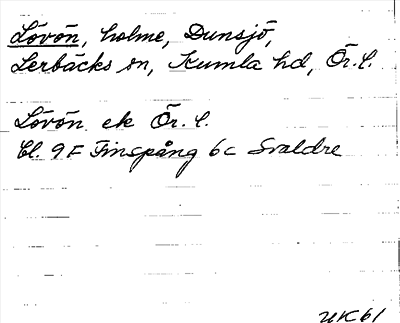 Lövön, holme, Dunsjö,
Lerbäcks sn, Kumla hd, Ör. l.
Lövön ek Ör. l.
Bl. 9F Finspång 6c Svaldre
UK 61